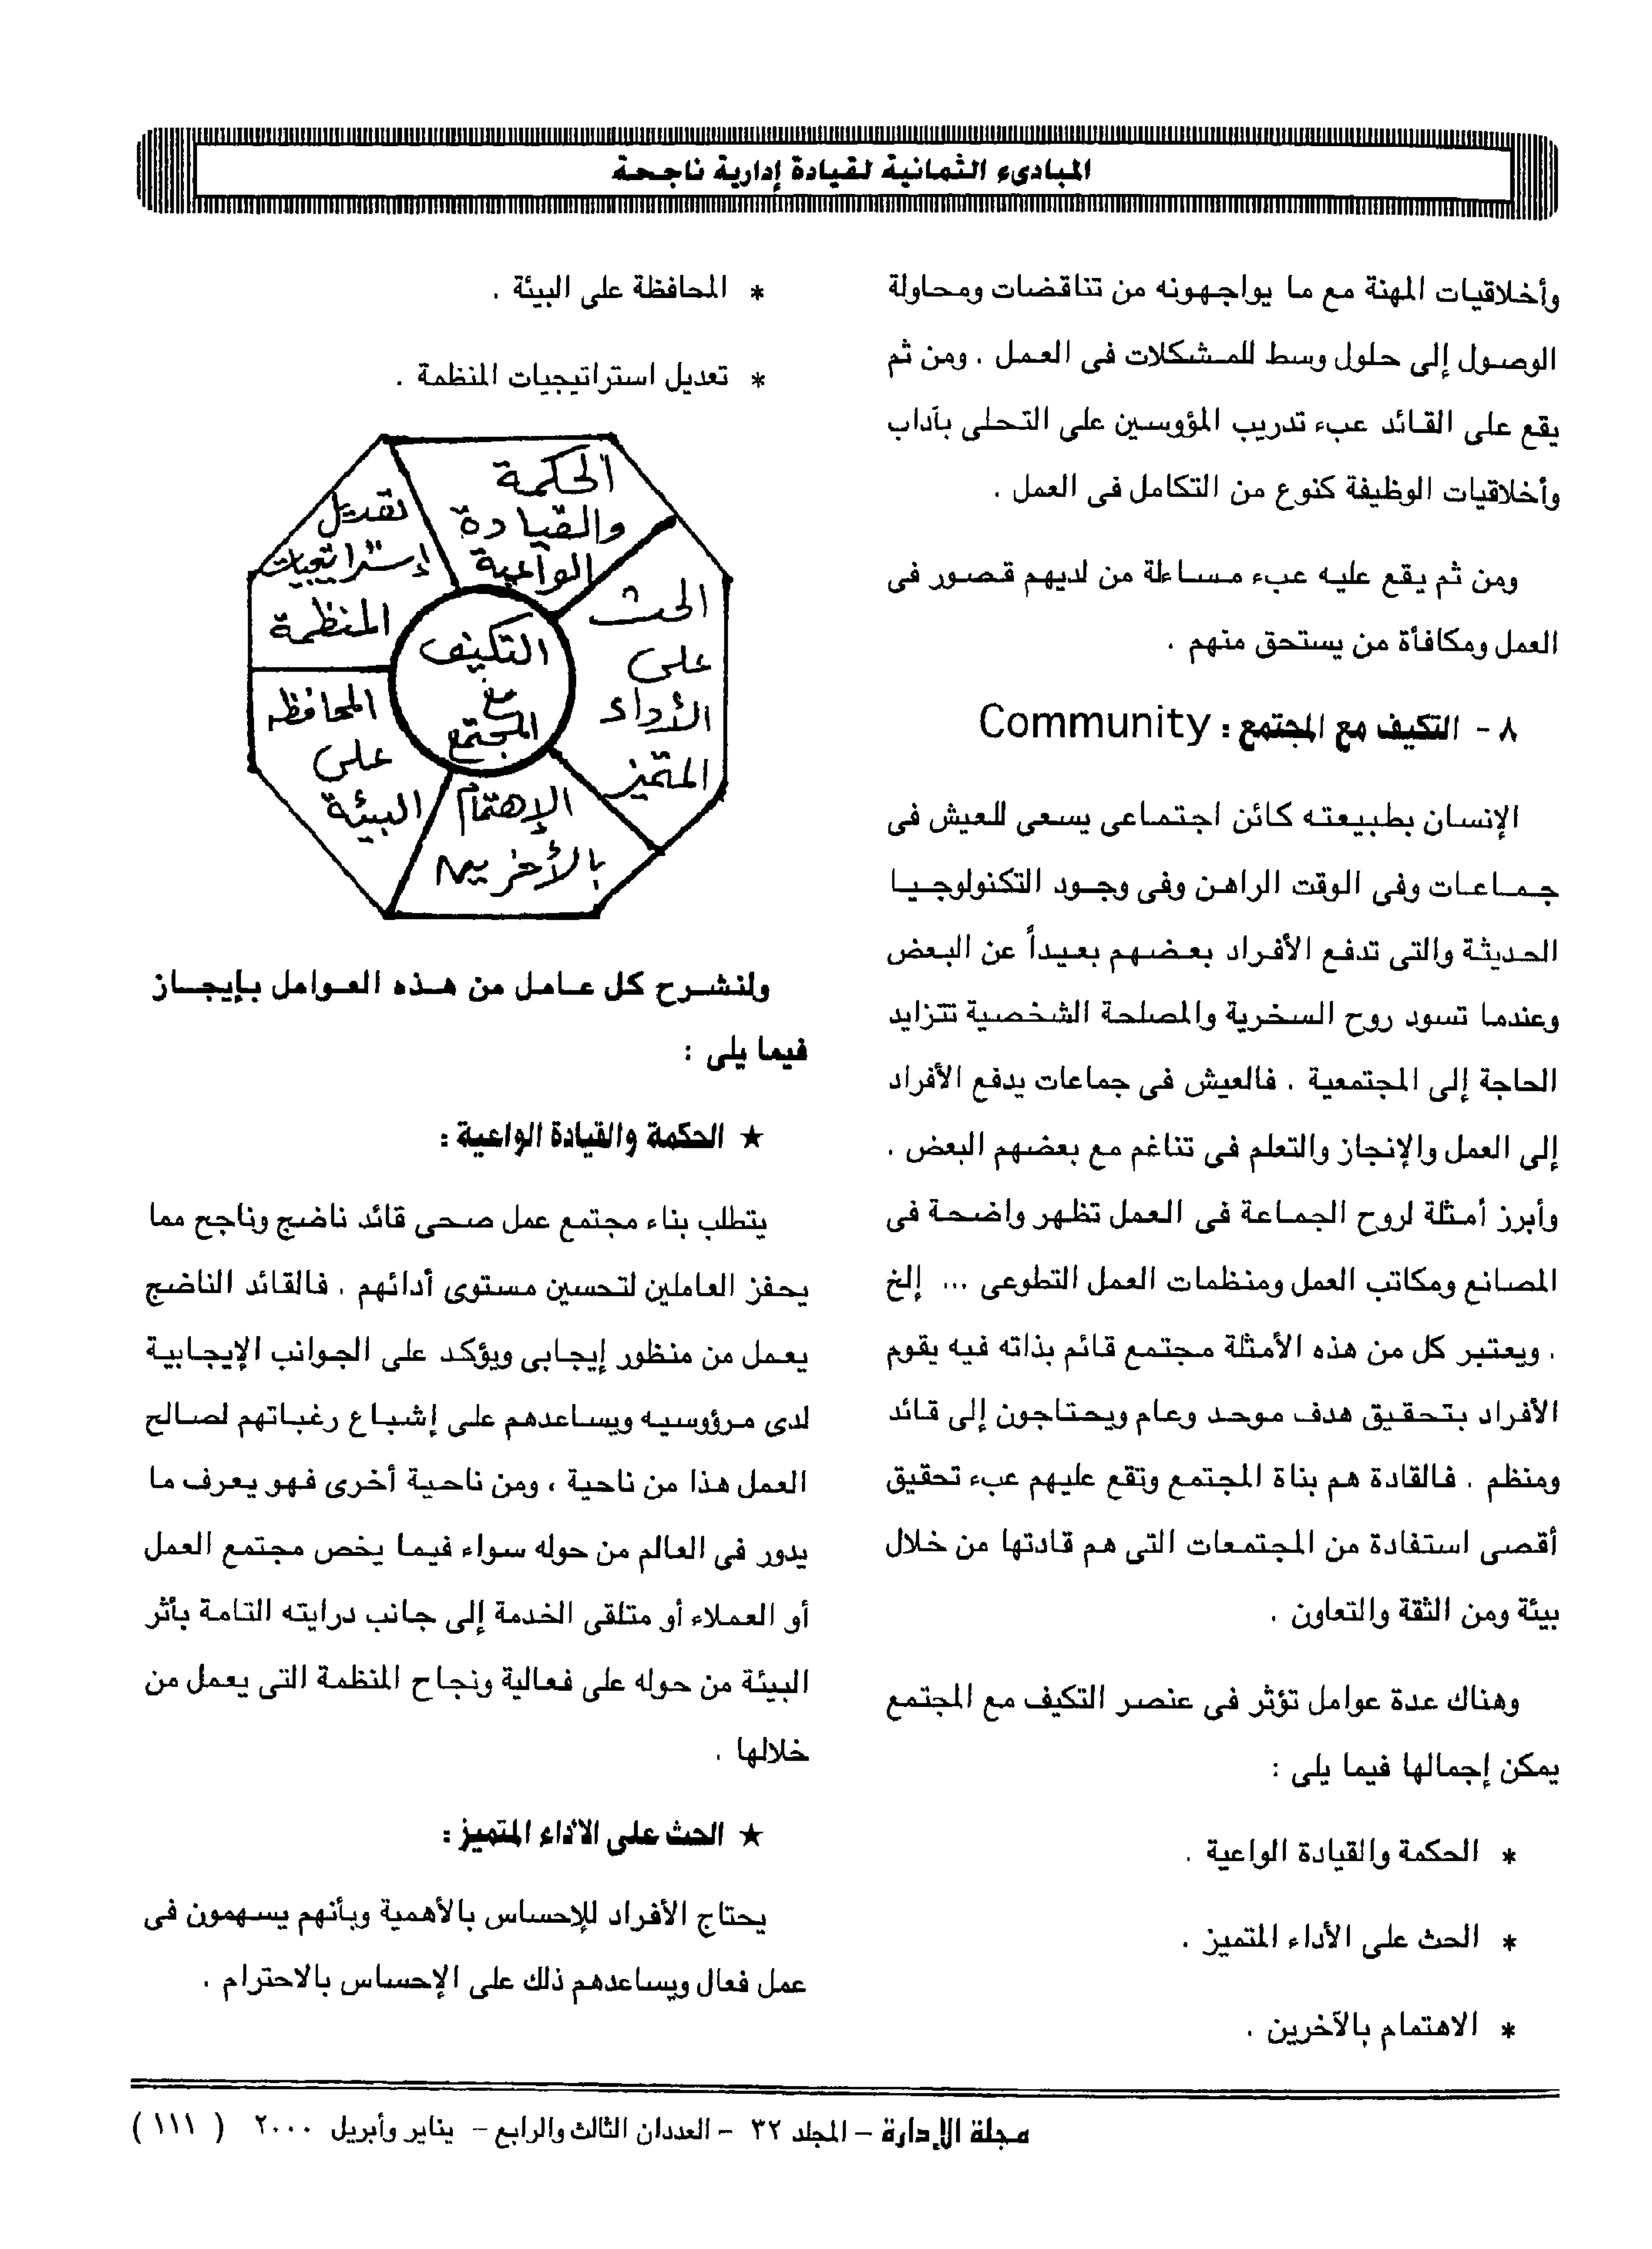 المبادىء الثمانية لقيادة إدارية ناجحة
وأخلاقيات المهنة مع ما يواجهونه من تناقضات ومحاولة
الوصول إلى حلول وسط للمشكلات فى العمل . ومن ثم
يقع على القائد عبء تدريب المؤوسين على التحلى بآداب
وأخلاقيات الوظيفة كنوع من التكامل فى العمل .
ومن ثم يقع عليه عبء مساءلة من لديهم قصور فى
العمل ومكافأة من يستحق منهم .
٨ - التكيف مع المجتمع : Community
الإنسان بطبيعته كائن اجتماعى يسعى للعيش فى
جماعات وفى الوقت الراهن وفى وجود التكنولوجيا
الحديثة والتى تدفع الأفراد بعضهم بعيداً عن البعض
وعندما تسود روح السخرية والمصلحة الشخصية تتزايد
الحاجة إلى المجتمعية . فالعيش فى جماعات يدفع الأفراد
إلى العمل والإنجاز والتعلم فى تناغم مع بعضهم البعض .
وأبرز أمثلة لروح الجماعة فى العمل تظهر واضحة فى
المصانع ومكاتب العمل ومنظمات العمل التطوعى ... إلخ
. ويعتبر كل من هذه الأمثلة مجتمع قائم بذاته فيه يقوم
الأفراد بتحقيق هدف موحد وعام ويحتاجون إلى قائد
ومنظم . فالقادة هم بناة المجتمع وتقع عليهم عبء تحقيق
أقصى استفادة من المجتمعات التى هم قادتها من خلال
بيئة ومن الثقة والتعاون .
وهناك عدة عوامل تؤثر فى عنصر التكيف مع المجتمع
يمكن إجمالها فيما يلى :
* الحكمة والقيادة الواعية .
* الحث على الأداء المتميز .
* الاهتمام بالآخرين .
* المحافظة على البيئة .
* تعديل استراتيجيات المنظمة .
الحكمة
والقيادة
الواعية
الحث
على
الأداء
المتميز
الإهتمام
بالأخرين
المحافظه
على
البيئة
تعديل
إستراتيجيات
المنظمة
التكيف
مع
المجتمع
ولنشرح كل عامل من هذه العوامل بإيجاز
فيما يلى :
★ الحكمة والقيادة الواعية :
يتطلب بناء مجتمع عمل صحى قائد ناضج وناجح مما
يحفز العاملين لتحسين مستوى أدائهم . فالقائد الناضج
يعمل من منظور إيجابى ويؤكد على الجوانب الإيجابية
لدى مرؤوسيه ويساعدهم على إشباع رغباتهم لصالح
العمل هذا من ناحية ، ومن ناحية أخرى فهو يعرف ما
يدور فى العالم من حوله سواء فيما يخص مجتمع العمل
أو العملاء أو متلقى الخدمة إلى جانب درايته التامة بأثر
البيئة من حوله على فعالية ونجاح المنظمة التى يعمل من
خلالها .
★ الحث على الأداء المتميز :
يحتاج الأفراد للإحساس بالأهمية وبأنهم يسهمون فى
عمل فعال ويساعدهم ذلك على الإحساس بالاحترام .
مجلة الإدارة – المجلد ٣٢ – العددان الثالث والرابع – يناير وأبريل ٢٠٠٠ ( ١١١ )